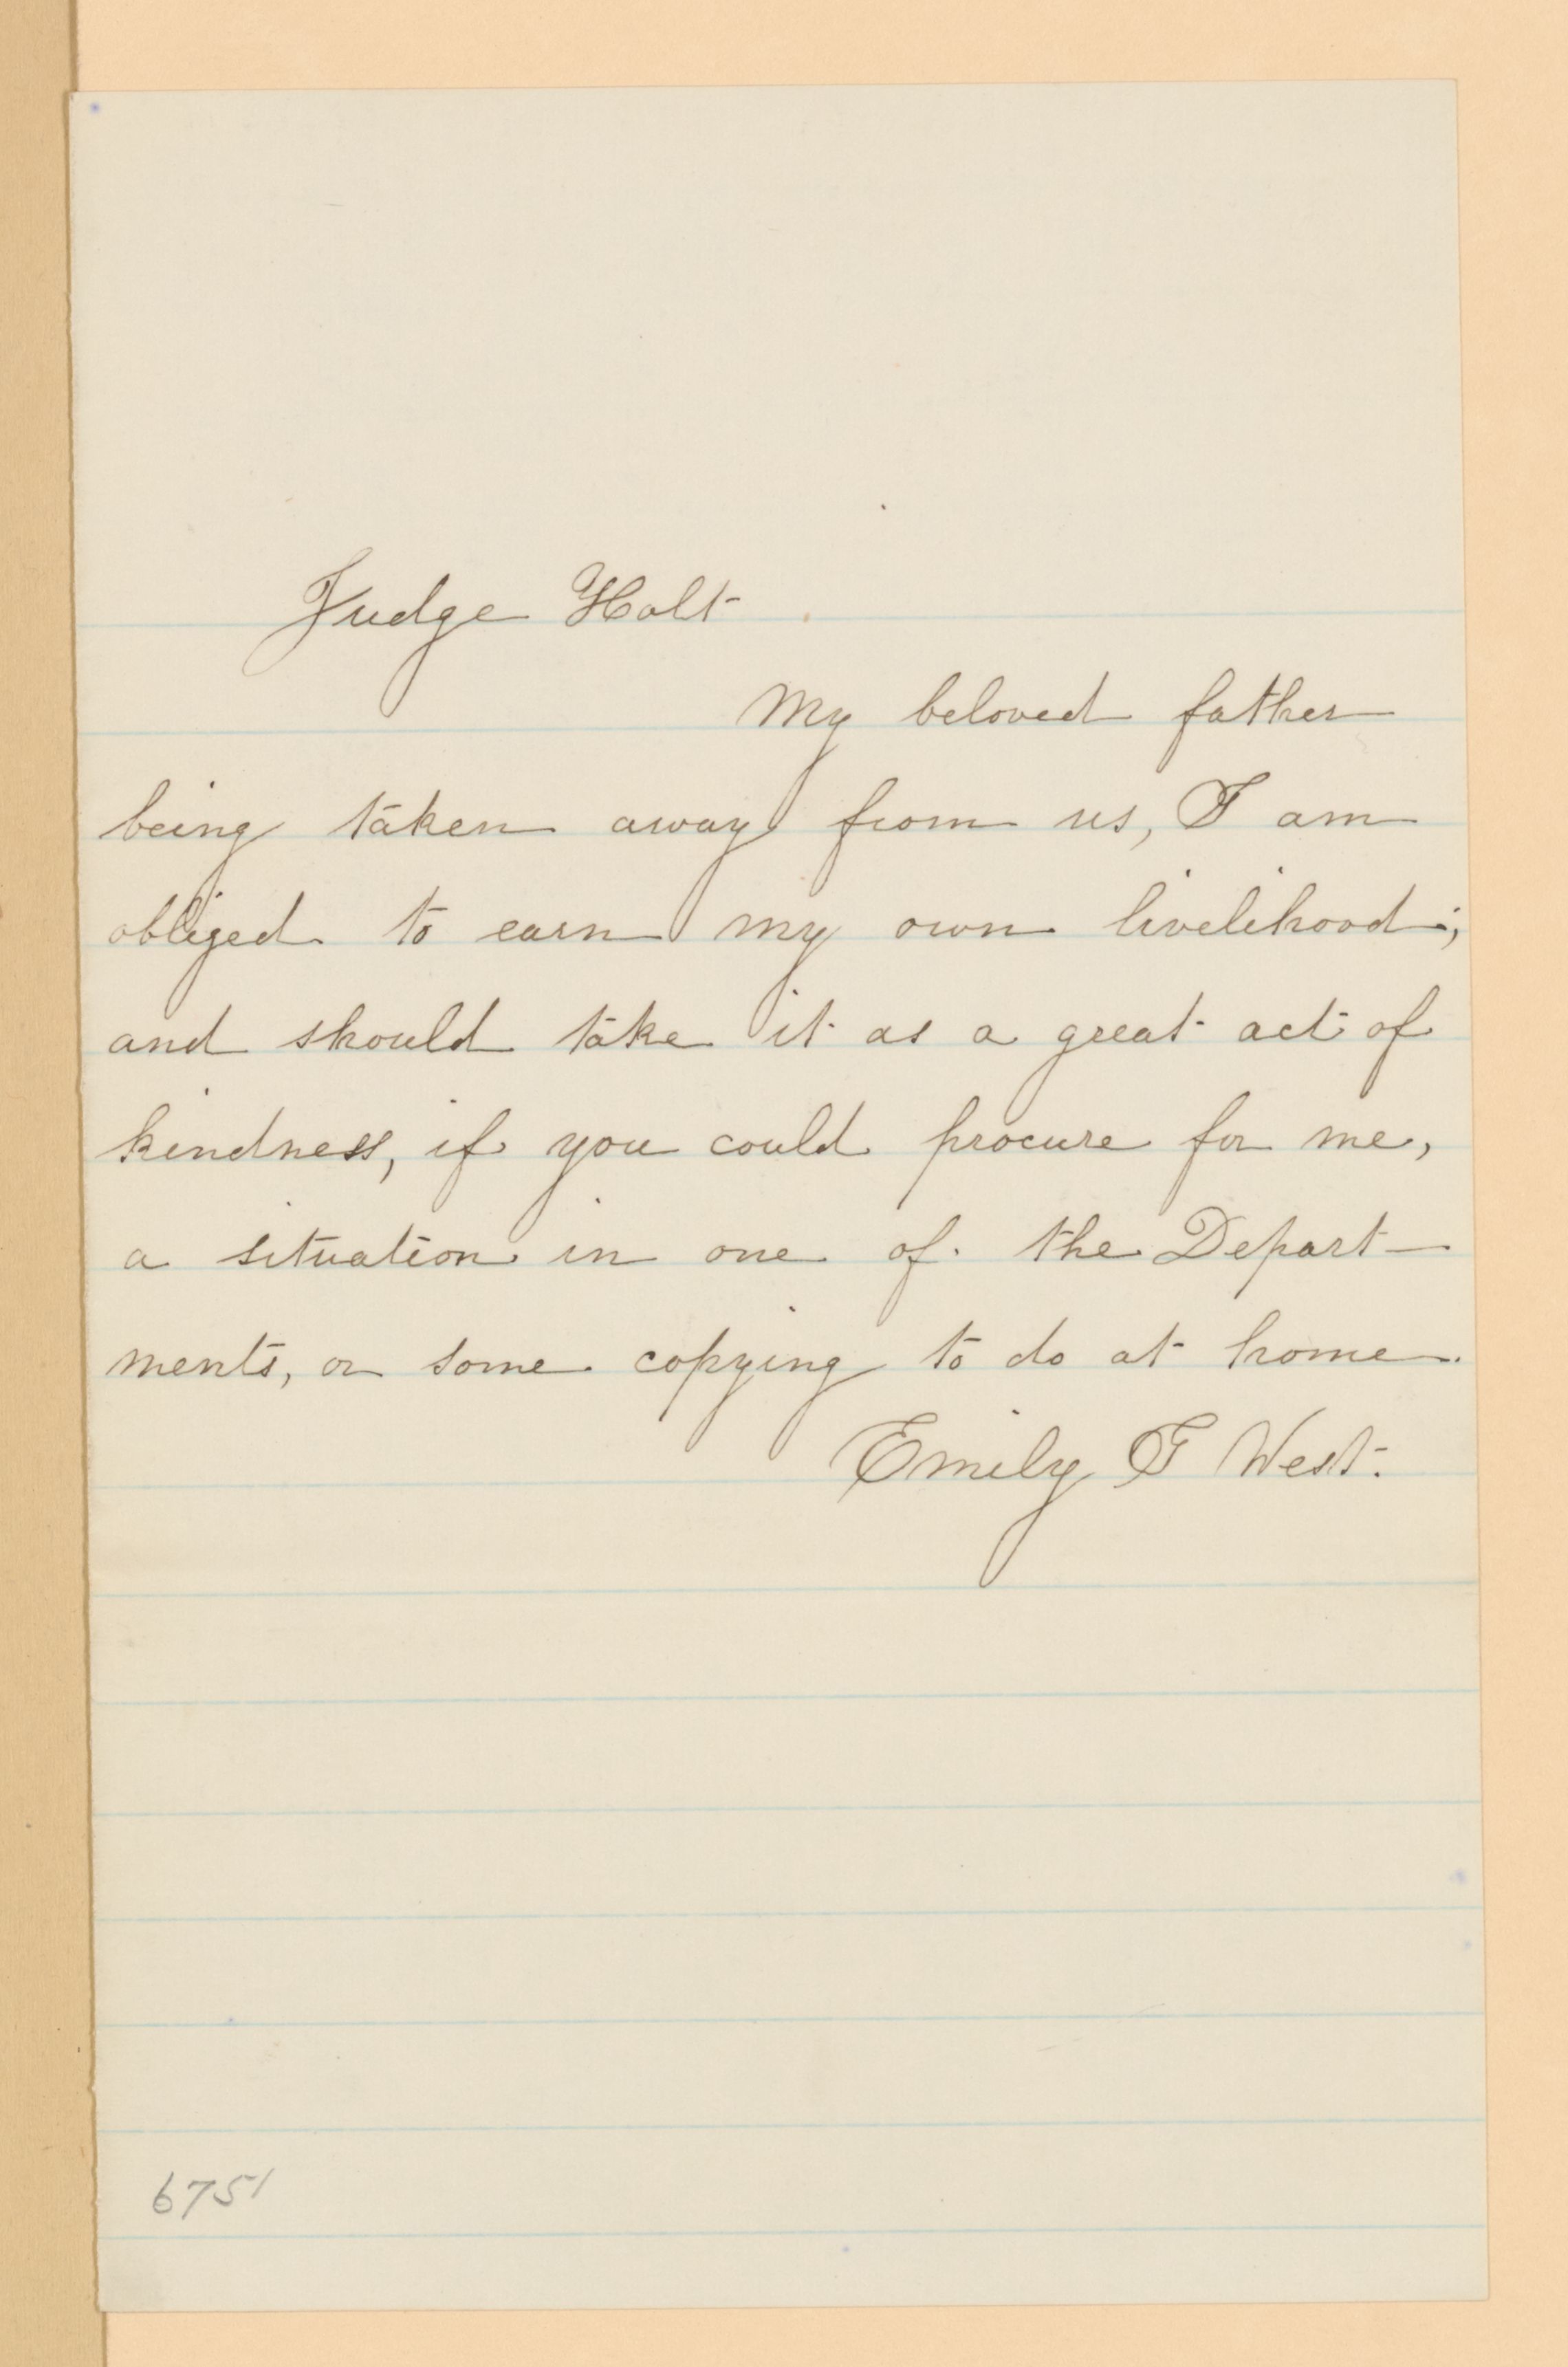 Judge Holt
My beloved father
being taken away from us, I am
obliged to earn my own livelihood;
and should take it as a great act of
kindness, if you could procure for me,
a situation in one of the Depart-
ments, or some copying to do at home.
Emily T West.
6751